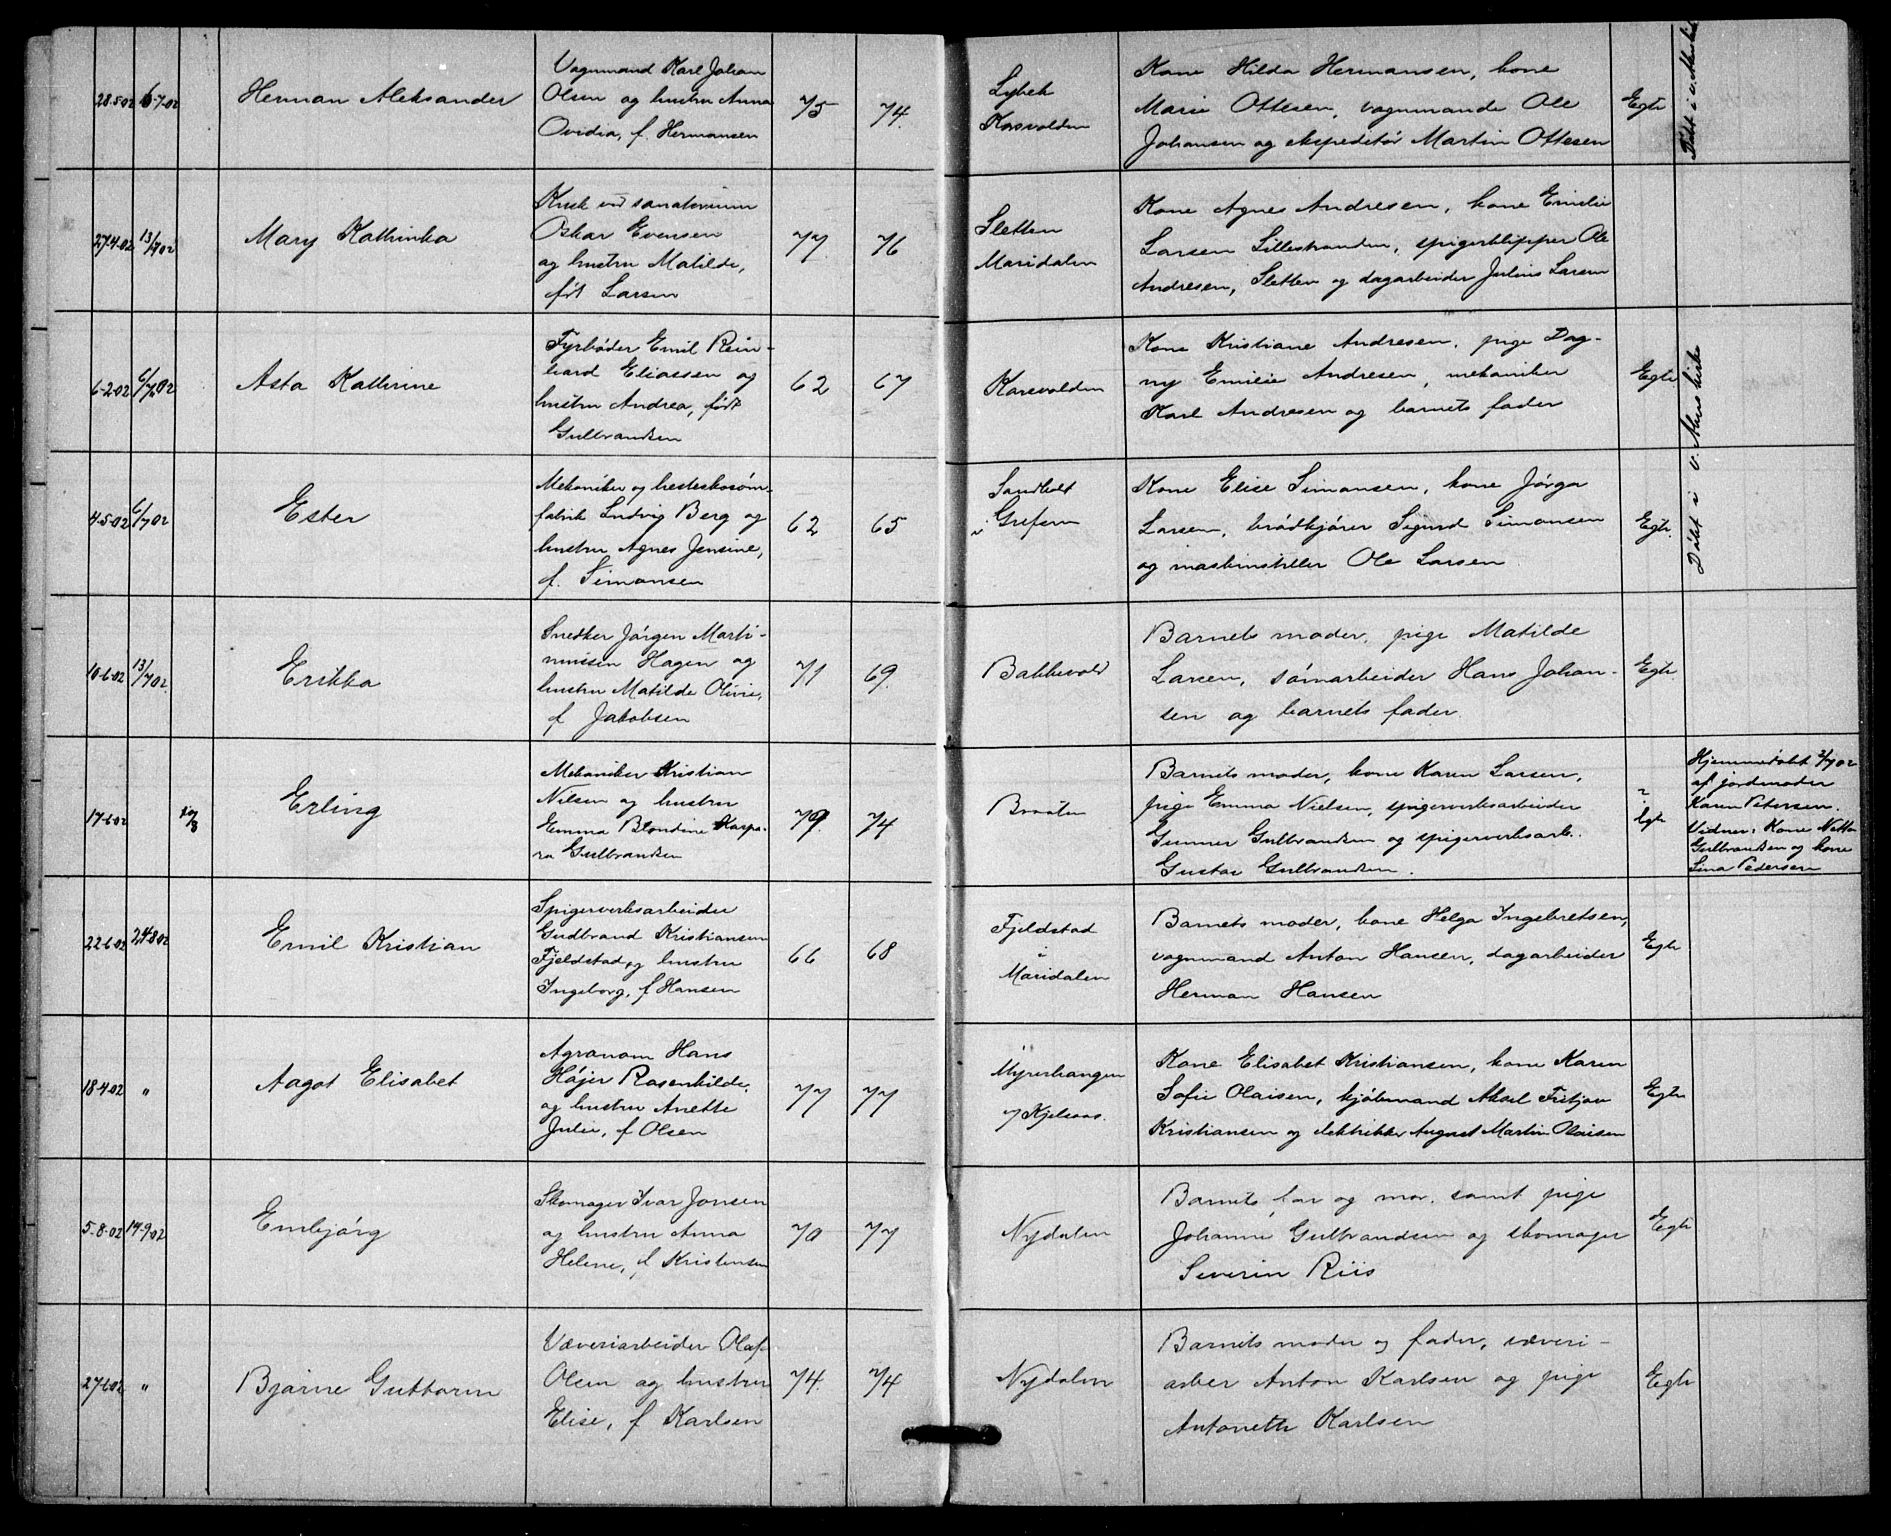 28.5.02 6.7.02 Herman Aleksander
Vognmand Karl Johan
Olsen og hustru Anna
Ovidia, f. Hermansen
75 74.
Lybek
Korsvolden
Kone Hilda Hermansen, kone
Marie Ottesen, vognmand Ole
Johansen og ekspeditør Martin Ottesen
Egte
27.4.02 13/7 02 Mary Kathinka
Kusk ved sanatorium
Oskar Evensen
og hustru Matilde,
født Larsen
77. 76
Sletten
Maridalen
Kone Agnes Andresen, kone Emilie
Larsen Lillestranden, spigerklipper Ole
Andresen, Sletten og dagarbeider Julius Larsen
6-2.02 6/7 02 Asta Kathrine
Fyrbøder Emil Rein-
hard Eliassen og
hustru Andrea, født
Gulbrandsen
62 67
Korsvolden
Kone Kristiane Andresen, pige Dag-
ny Emilie Andresen, mekaniker
Karl Andresen og barnets fader
Egte
4-5-02 6/7 02 Ester
Mekaniker og hesteskosøm-
fabrik Ludvig Berg og
hustru Agnes Jensine,
f. Simonsen
62 65
Sandholt
i Grefsen
Kone Elise Simonsen, kone Jørga
Larsen, brødkjører Sigurd Simonsen
og maskinstiller Ole Larsen
Egte.
Døbt i v. Akers kirke
10-6.02 13/7 02. Erikka
Snedker Jørgen Marti-
nussen Hagen og
hustru Matilde Olivie,
f Jakobsen
71 69.
Bakkevold
Barnets moder, pige Matilde
Larsen, sømarbeider Hans Johan-
sen og barnets fader.
Egte.
17-6.02 10/8 Erling
Mekaniker Kristian
Nilsen og hustru
Emma Blondine Kaspa-
ra Gulbrandsen
79. 74
Braaten
Barnets moder, kone Karen Larsen,
pige Emma Nielsen, spigerverksarbeider
Gunner Gulbrandsen og spigerverksarb.
Gustav Gulbrandsen.
? Egte
Hjemmedøbt 2/7 02
af jordmoder
Karen Petersen.
Vidner: Kone Netta
Gulbrandsen og kone
Lina Pedersen
22.6.02 24.8.02 Emil Kristian
Spigerverksarbeider
Gudbrand Kristiansen
Fjeldstad, og hustru
Ingeborg, f Hansen
66 68
Fjeldstad
i
Maridalen
Barnets moder, kone Helga Ingebretsen,
vognmand Anton Hansen, dagarbeider
Herman Hansen
Egte
18.4.02 " Aagot Elisabet
Agronom Hans
Højer Rosenkilde,
og hustru Anette
Julie, f Olsen
77 77
Myrerhaugen
v/ Kjelsaas.
Kone Elisabet Kristiansen, kone Karen
Sofie Olaisen, kjøbmand Aksel Fritjov
Kristiansen og elektriker August Martin Olaisen
Egte
5-8-02 14-9.02 Embjørg
Skomager Ivar Jonsen
og hustru Anna
Helene, f Kristensen
70 77
Nydalen
Barnets far og mor, samt pige
Johanne Gulbrandsen og skomager
Severin Riis
Egte
27.6.02 " Bjarne Guttorm
Væveriarbeider Olaf
Olsen og hustru
Elise, f Karlsen
74. 74
Nydalen
Barnets moder og fader, væveri-
arber Anton Karlsen og pige
Antonette Karlsen
Egte